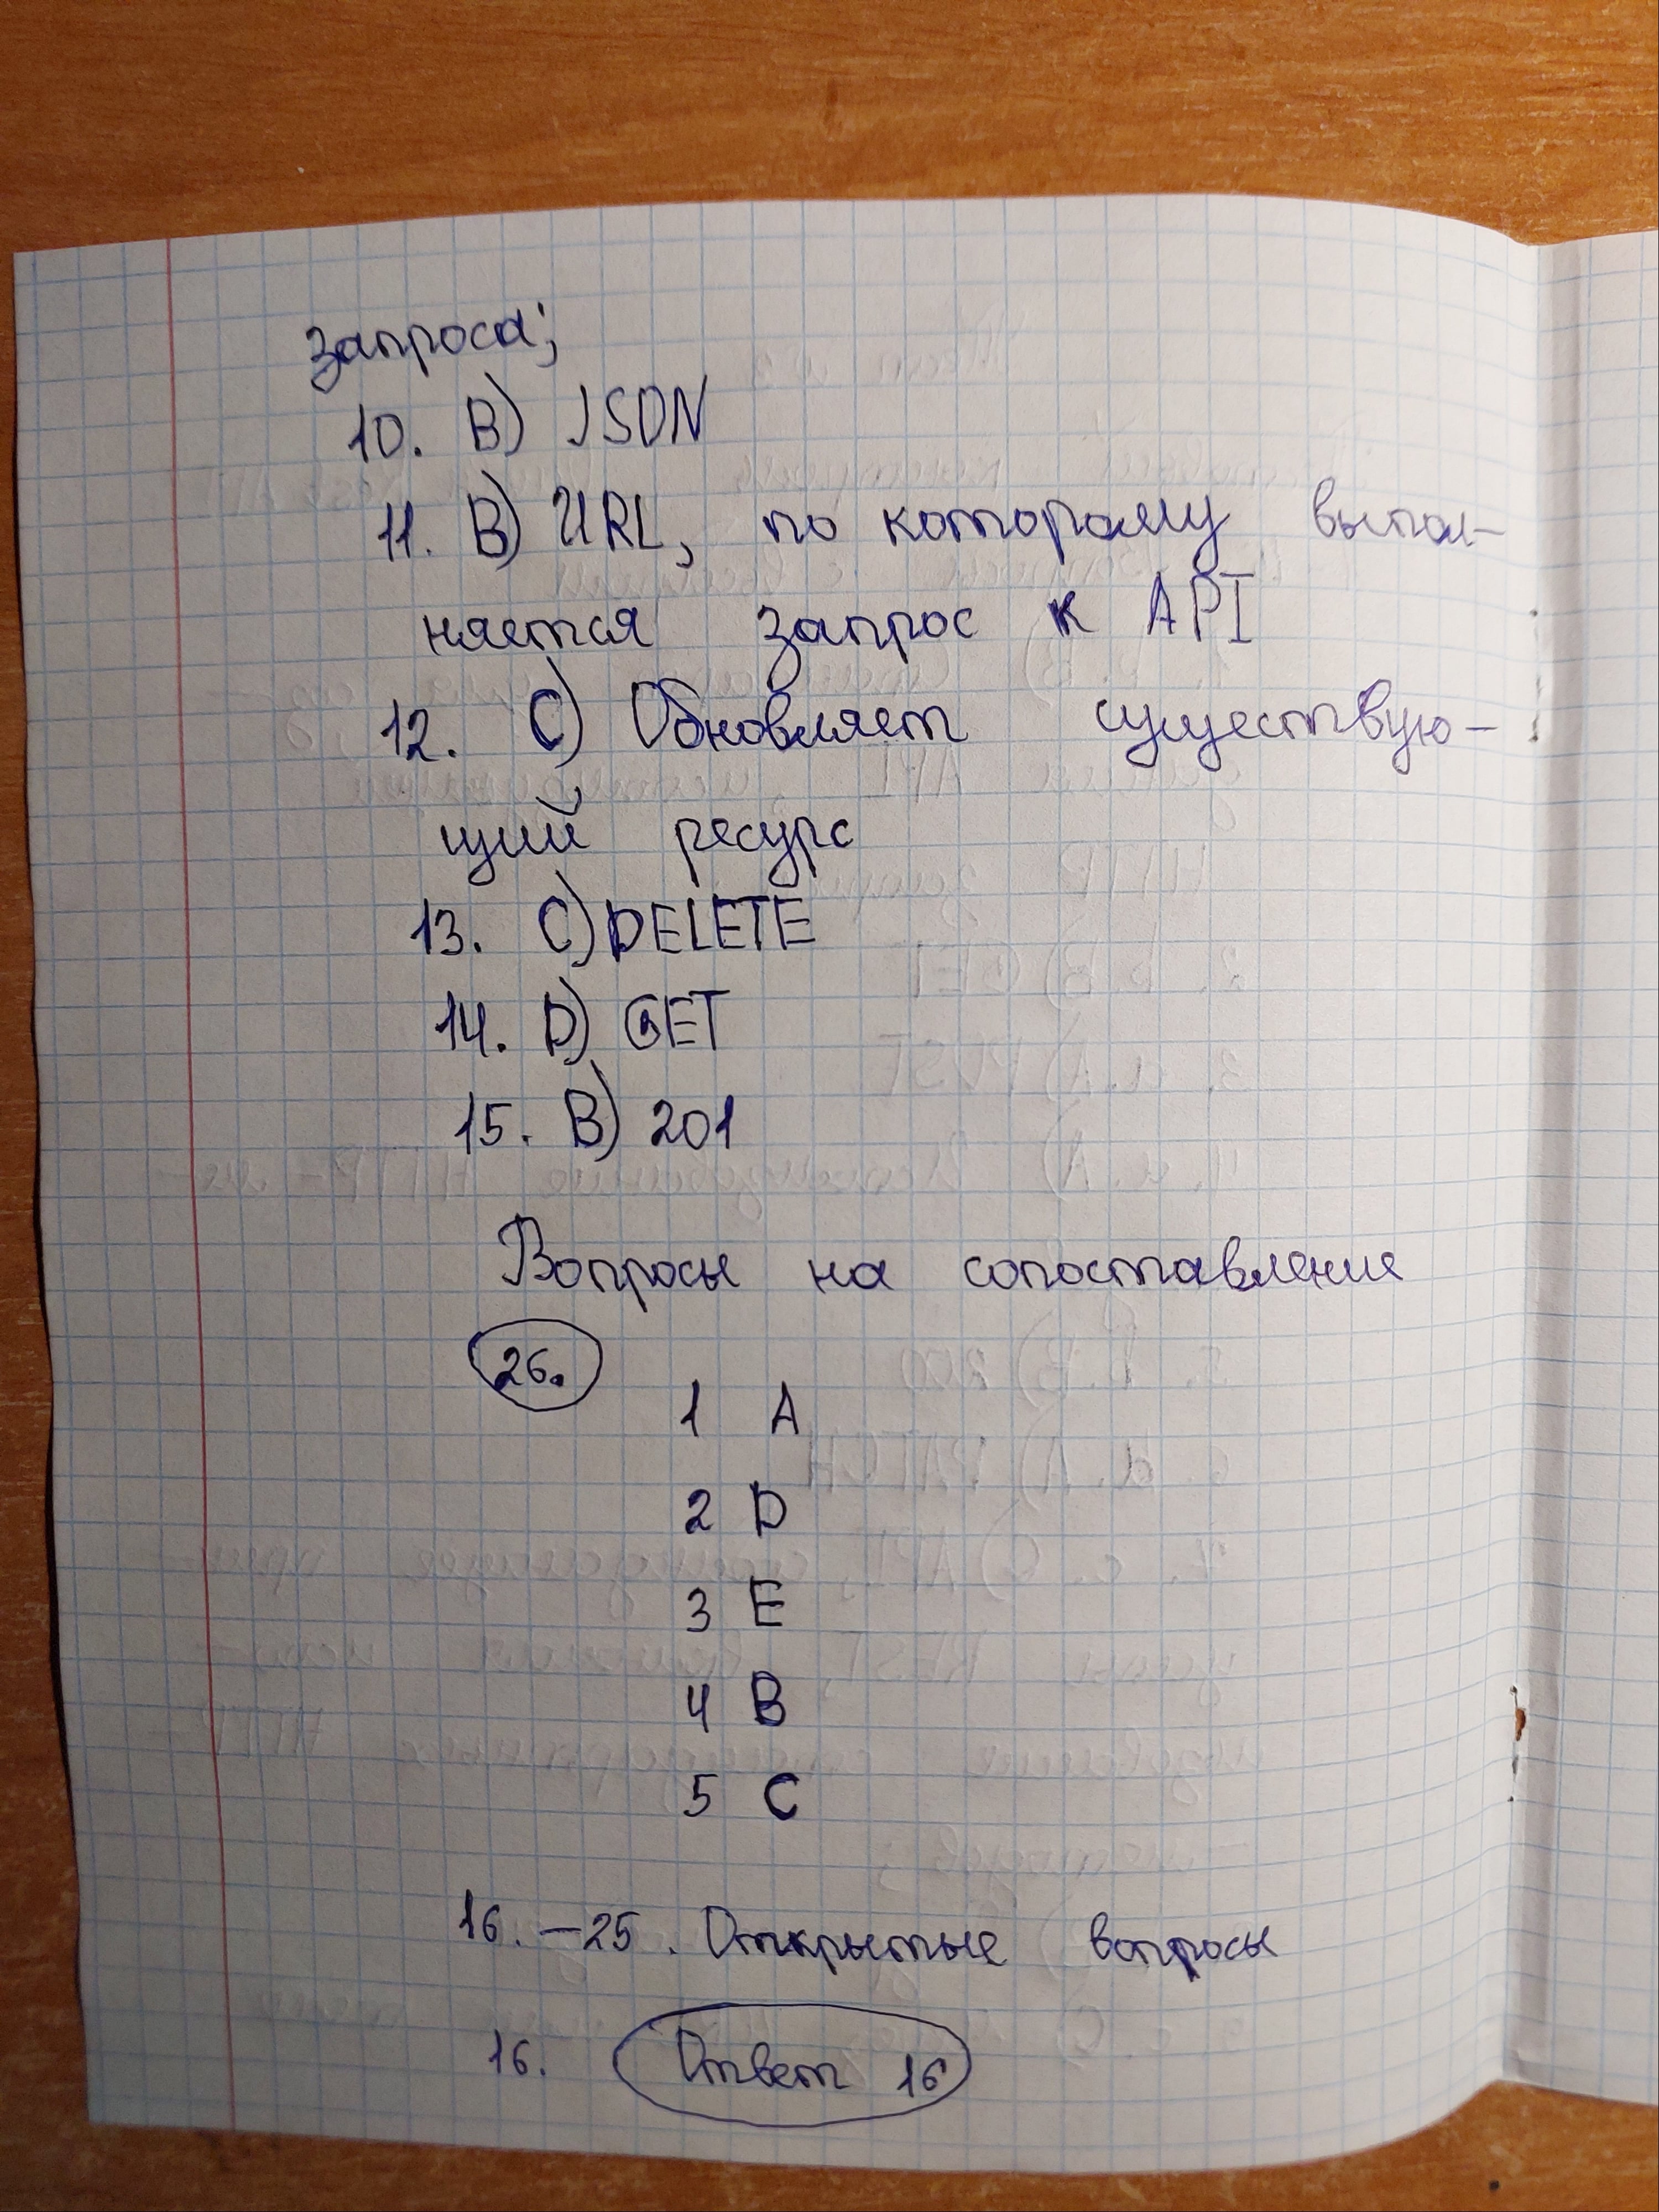 запроса;
10. B) JSON
11. B) URL, по которому выпол-
няется запрос к API
12. C) Обновляет существую-
щий ресурс
13. C) DELETE
14. D) GET
15. B) 201
Вопросы на сопоставление
26.
1 A
2 D
3 E
4 B
5 C
16. – 25. Открытые вопросы
16. Ответ 16